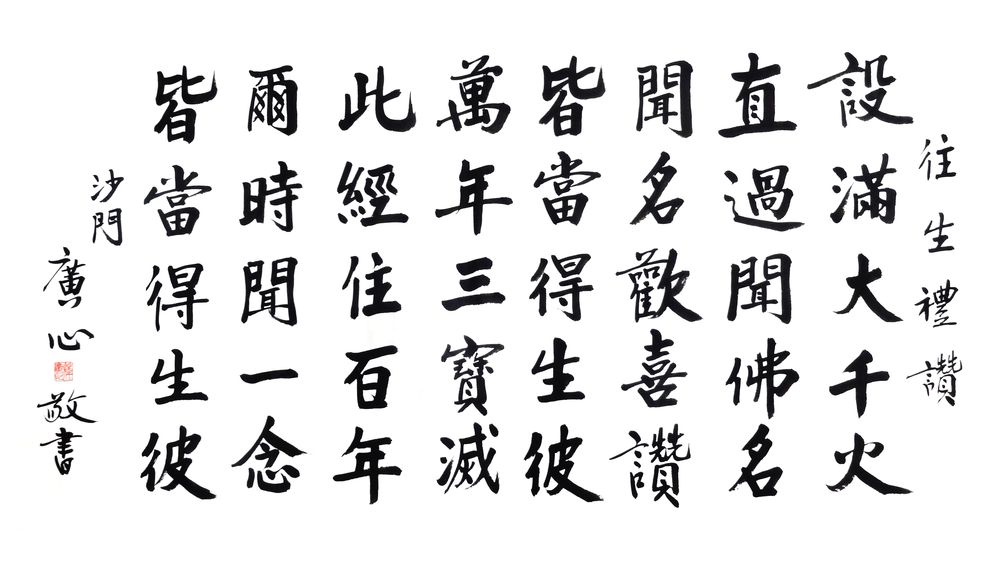 往生禮讚
設滿大千火
直過聞佛名
聞名歡喜讚
皆當得生彼
萬年三寶滅
此經住百年
爾時聞一念
皆當得生彼
沙門
廣心
敬書